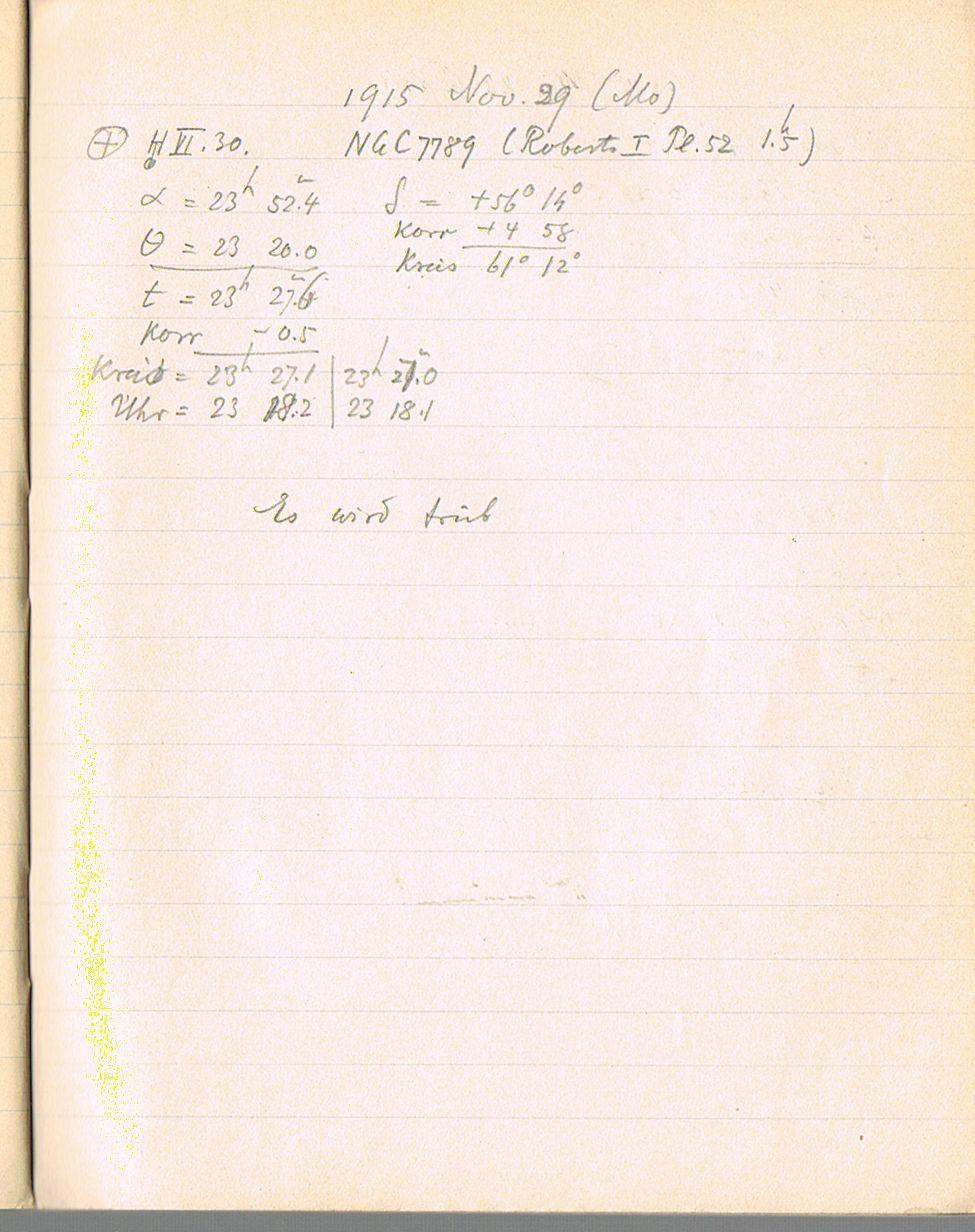 1915 Nov. 29 (Mo)
⊕ H VI. 30. NGC 7789 (Roberts I Pl. 52 1.5ʰ)
α = 23ʰ 52.4ᵐ δ = +56° 14°
θ = 23 20.0 Korr +4 58
t = 23ʰ 27.6ᵐ Kreis 61° 12°
Korr -0.5
Kreis = 23ʰ 27.1 | 23ʰ 27.0ᵐ
Uhr = 23 18.2 | 23 18.1
Es wird trüb